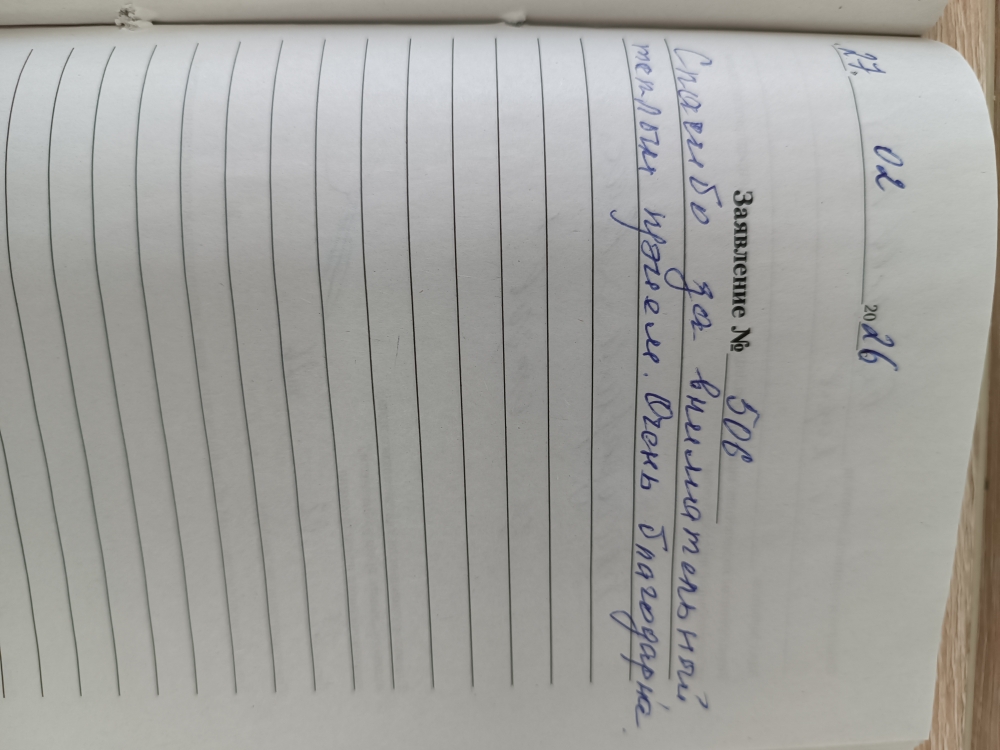 27. 02 2026
Заявление № 506
Спасибо за внимательный
теплый прием. Очень благодарна.